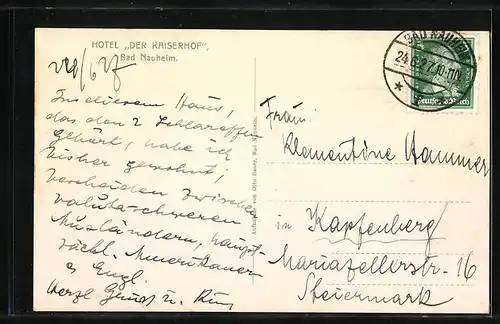 HOTEL „DER KAISERHOF“,
Bad Nauheim.
24/6 27
In diesem Haus,
das den 2 Schlaraffen
gehört, habe ich
bisher gewohnt,
bescheiden zwischen
valutaschweren
Ausländern, haupt-
sächl. Amerikaner
u. Engl.
Herzl Gruß u. Kuss
Aufnahme von Otto Bauer, Bad Nauheim.
BAD NAUHEIM
24.6.27.10-11V.
Deutsches Reich
Frau
Klementine Hammer
in Kapfenberg
Mariazellerstr. 16
Steiermark